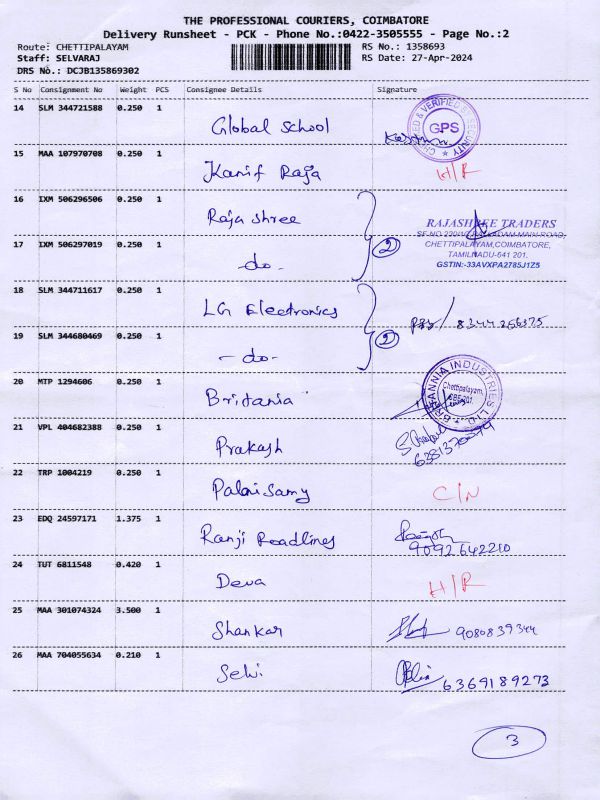 THE PROFESSIONAL COURIERS, COIMBATORE
Delivery Runsheet - PCK - Phone No.:0422-3505555 - Page No.:2
Route: CHETTIPALAYAM
RS No.: 1358693
Staff: SELVARAJ
RS Date: 27-Apr-2024
DRS No.: DCJB135869302
S No Consignment No Weight PCS Consignee Details Signature
14 SLM 344721588 0.250 1 Global School
GPS
15 MAA 107970708 0.250 1 Kanif Raja H/R
16 IXM 506296506 0.250 1 Raja shree
17 IXM 506297019 0.250 1 -do-
2
RAJASHREE TRADERS
CHETTIPALAYAM,COIMBATORE,
TAMILNADU-641 201.
GSTIN:-33AVXPA2785J1Z5
18 SLM 344711617 0.250 1 LG Electronics
19 SLM 344680469 0.250 1 -do-
2
20 MTP 1294606 0.250 1 Britania
BRITANNIA INDUSTRIES LTD
Chettipalayam,
21 VPL 404682388 0.250 1 Prakash
22 TRP 1004219 0.250 1 Palanisamy C/N
23 EDQ 24597171 1.375 1 Ranji Readlines
9092642210
24 TUT 6811548 0.420 1 Deva H/R
25 MAA 301074324 3.500 1 Shankar 9080839344
26 MAA 704055634 0.210 1 Selvi 6369189273
3